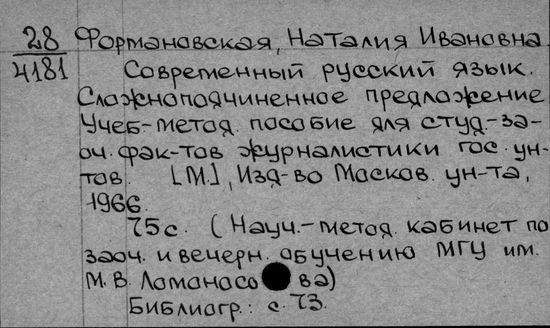 28 Формановская, Наталия Ивановна
4181 Современный русский язык.
Сложноподчиненное предложение
Учеб-метод. пособие для студ-за-
оч. фак-тов журналистики гос. ун-
тов. [М.], Изд-во Москов. ун-та,
1966.
75с. (Науч.-метод. кабинет по
заоч. и вечерн. обучению МГУ им.
М. В. Ломоносова)
Библиогр.: с. 73.